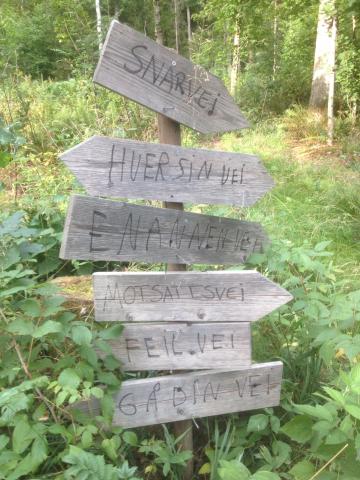 SNARVEI
HVER SIN VEI
EN ANNEN VEI
MOTSATTSVEI
FEIL VEI
GÅ DIN VEI